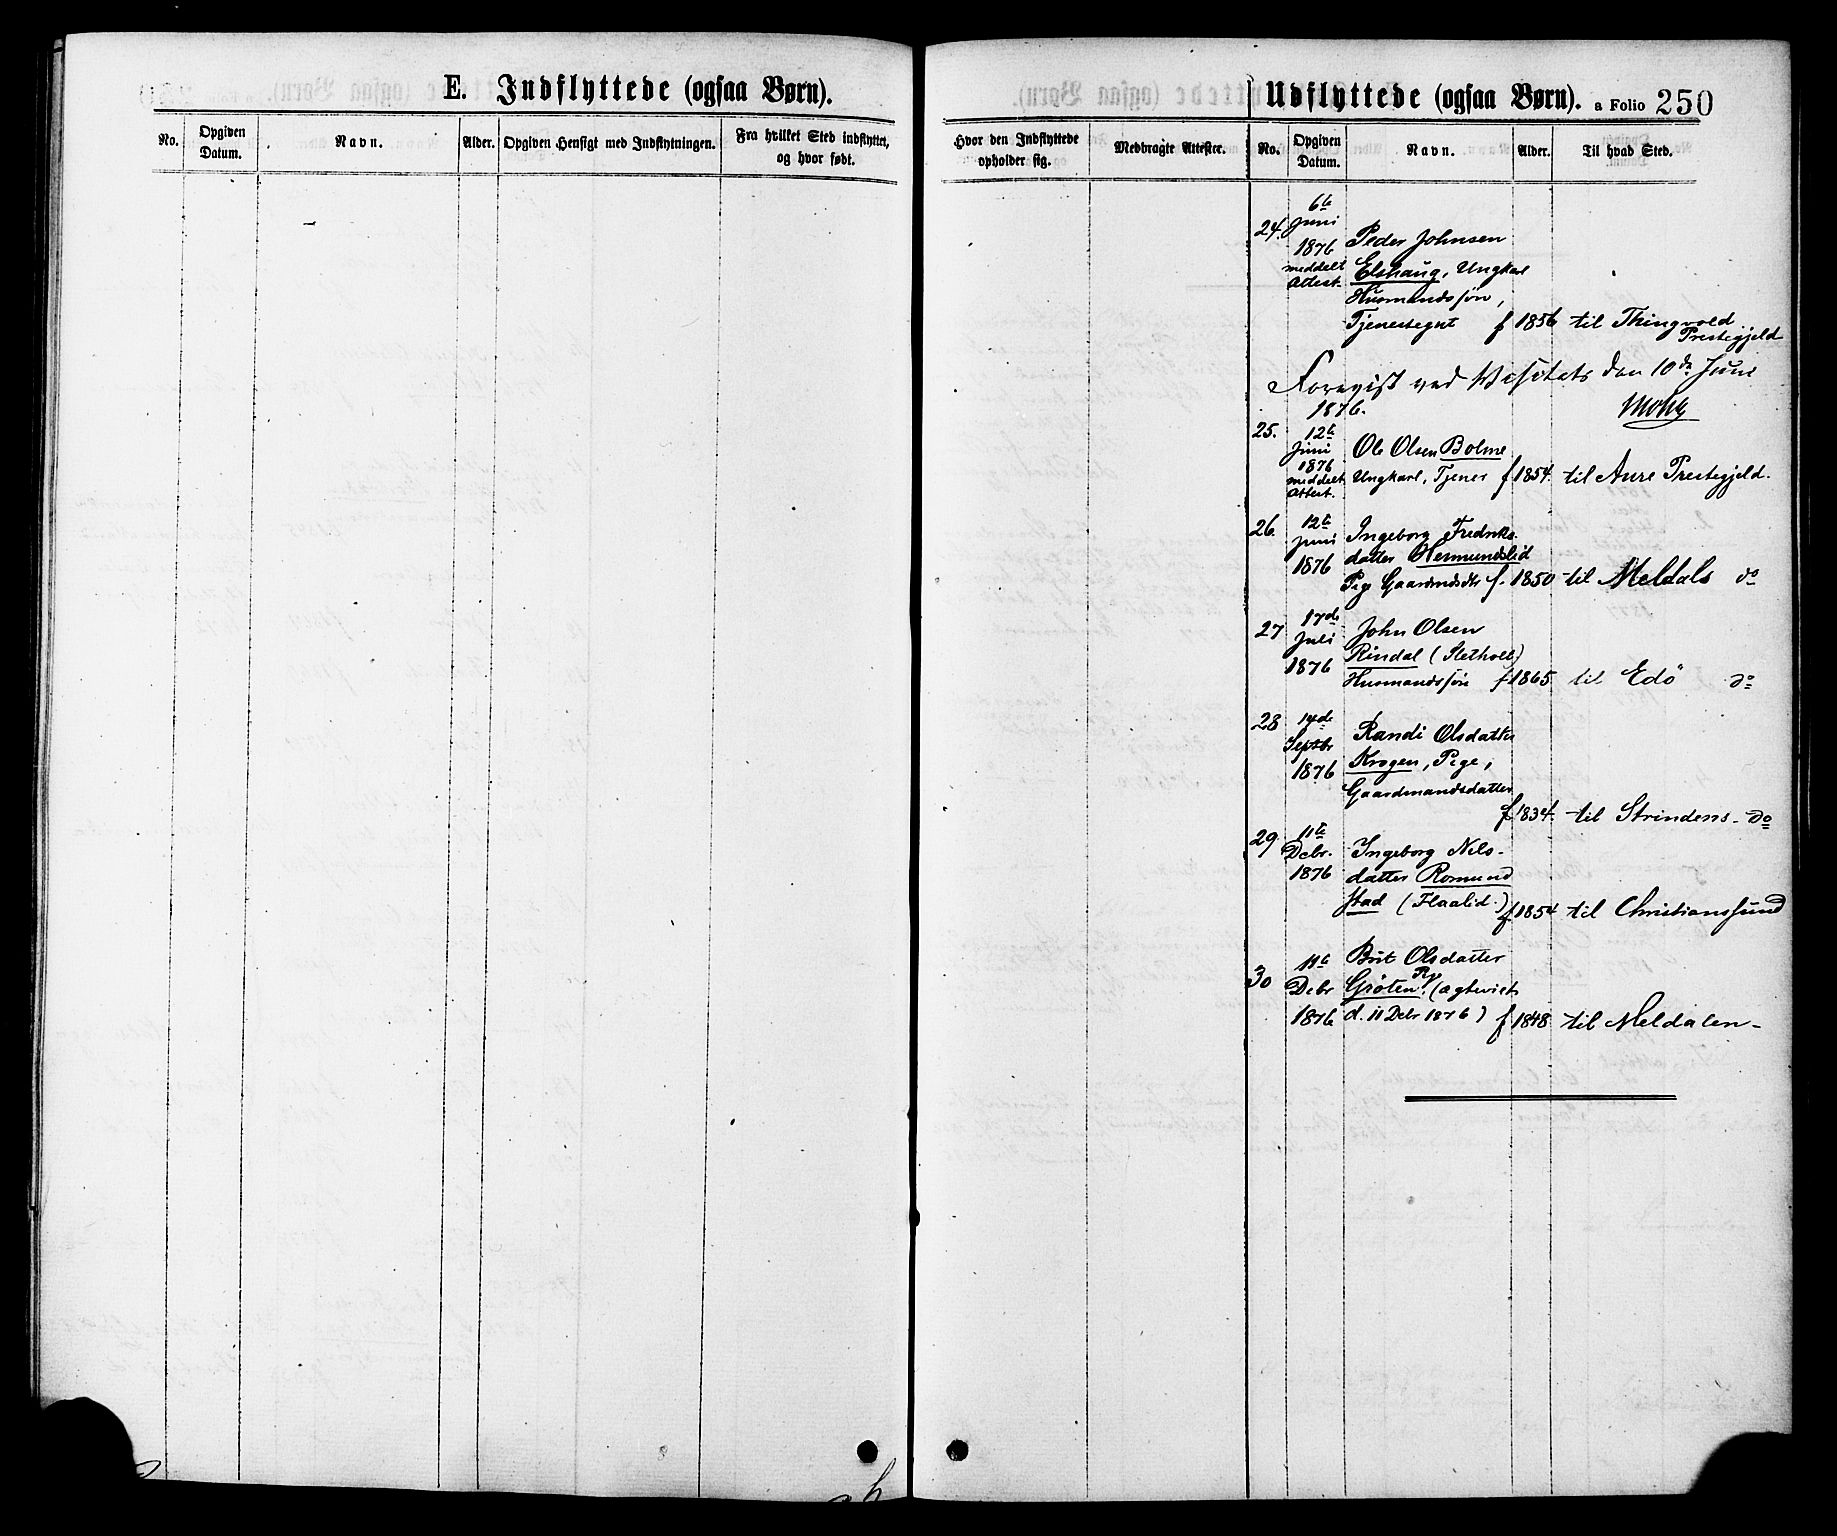 E. Indflyttede (ogsaa Børn).
No.
Opgiven Datum.
Navn.
Alder.
Opgiven Hensigt med Indflytningen.
Fra hvilket Sted indflyttet, og hvor født.
Udflyttede (ogsaa Børn). a Folio 250
Hvor den Indflyttede opholder sig.
Medbragte Attester.
No.
Opgiven Datum.
Navn.
Alder.
Til hvad Sted.
24. 6te Juni 1876 meddelt Attest.
Peder Johnsen
Elshaug, Ungkarl
Husmandssøn,
Tjenestegut f 1856 til Thingvold Prestegjeld
Forevist ved Visitats den 10de Juni
1876.
25. 12te Juni 1876 meddelt Attest.
Ole Olsen Bolme
Ungkarl, Tjener f 1854. til Aure Prestegjeld.
26. 12te Juni 1876
Ingeborg Fredriks
datter Hermundslid
Pige Gaardmdsdtr f. 1850 til Meldals do
27 17de Juli 1876
John Olsen
Rindal (Sletholt)
Husmandssøn f 1865 til Edö do
28 14de Septbr 1876
Randi Olsdatter
Krogen, Pige,
Gaardmandsdatter
f 1834. til Strindens - do
29. 11te Debr. 1876
Ingeborg Nels-
datter Romund
stad (Flaalid.) f 1854 til Christianssund
30 11te Debr 1876
Brit Olsdatter
Grøten Pg. (agteviet
d. 11 Debr 1876) f 1848 til Meldalen -